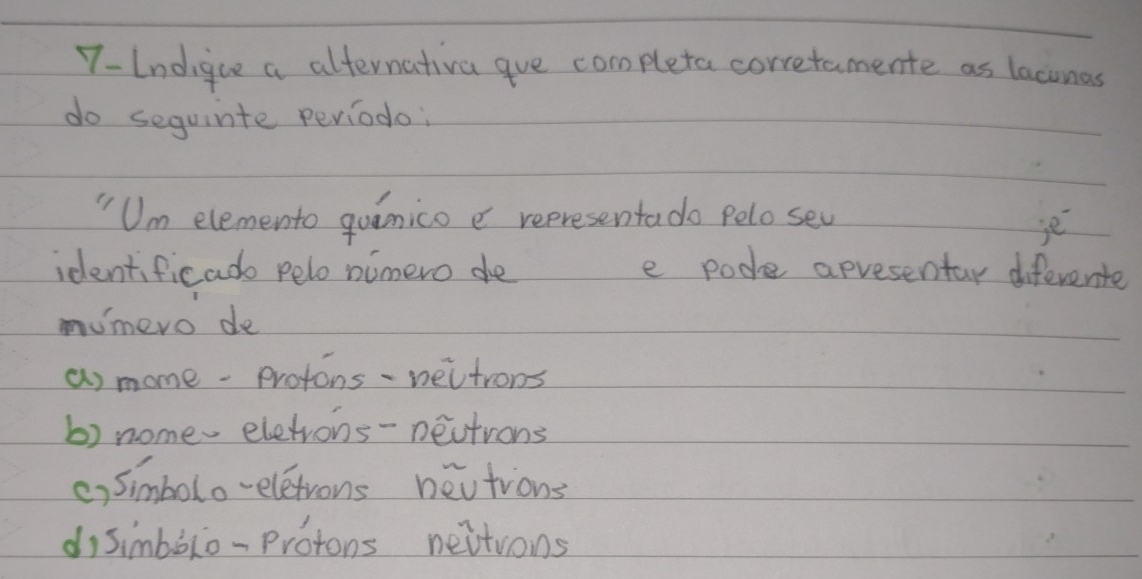 7- Indique a alternativa que completa corretamente as lacunas
do seguinte período:
"Um elemento químico é representado pelo seu ;é
identificado pelo número de e pode apresentar diferente
número de
a) mome - Protóns - nêutrons
b) nome - eletróns - nêutrons
c) Símbolo - elétrons nêutrons
d) Simbólo - Prótons nêutrons